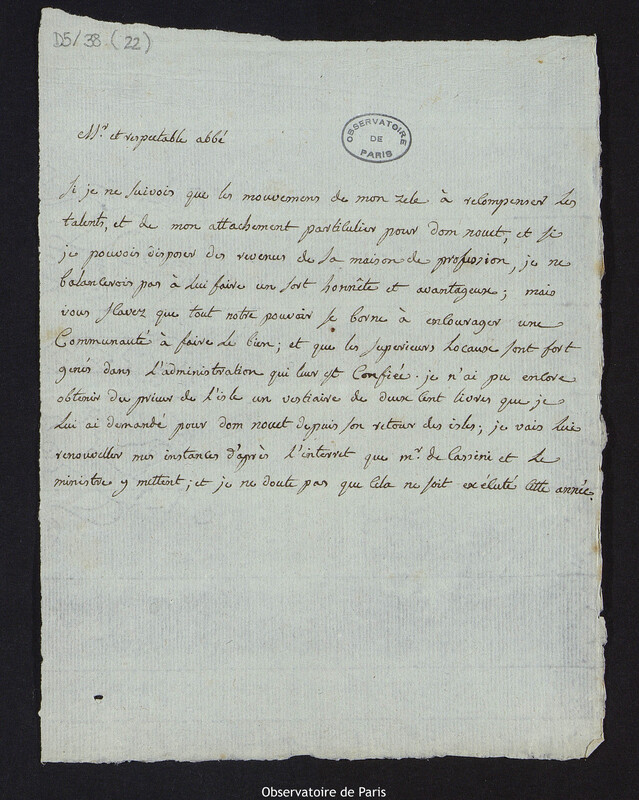 D5/38 (22)
OBSERVATOIRE
DE
PARIS
Mr et respectable abbé
si je ne suivois que les mouvemens de mon zele à recompenser les
talents, et de mon attachement particulier pour dom nouet, et si
je pouvois disposer des revenus de sa maison de profession, je ne
balancerois pas à lui faire un sort honnête et avantageux; mais
vous sçavez que tout notre pouvoir se borne à encourager une
Communauté à faire le bien; et que les superieurs locaux sont fort
genés dans l'administration qui leur est Confiée. je n'ai pu encore
obtenir du prieur de l'isle un vestiaire de deux cent livres que je
lui ai demandé pour dom nouet depuis son retour des isles; je vais lui
renouveller mes instances d'après l'interret que mr. de Cassini et le
ministre y mettent; et je ne doute pas que cela ne soit exécuté cette année.
Observatoire de Paris